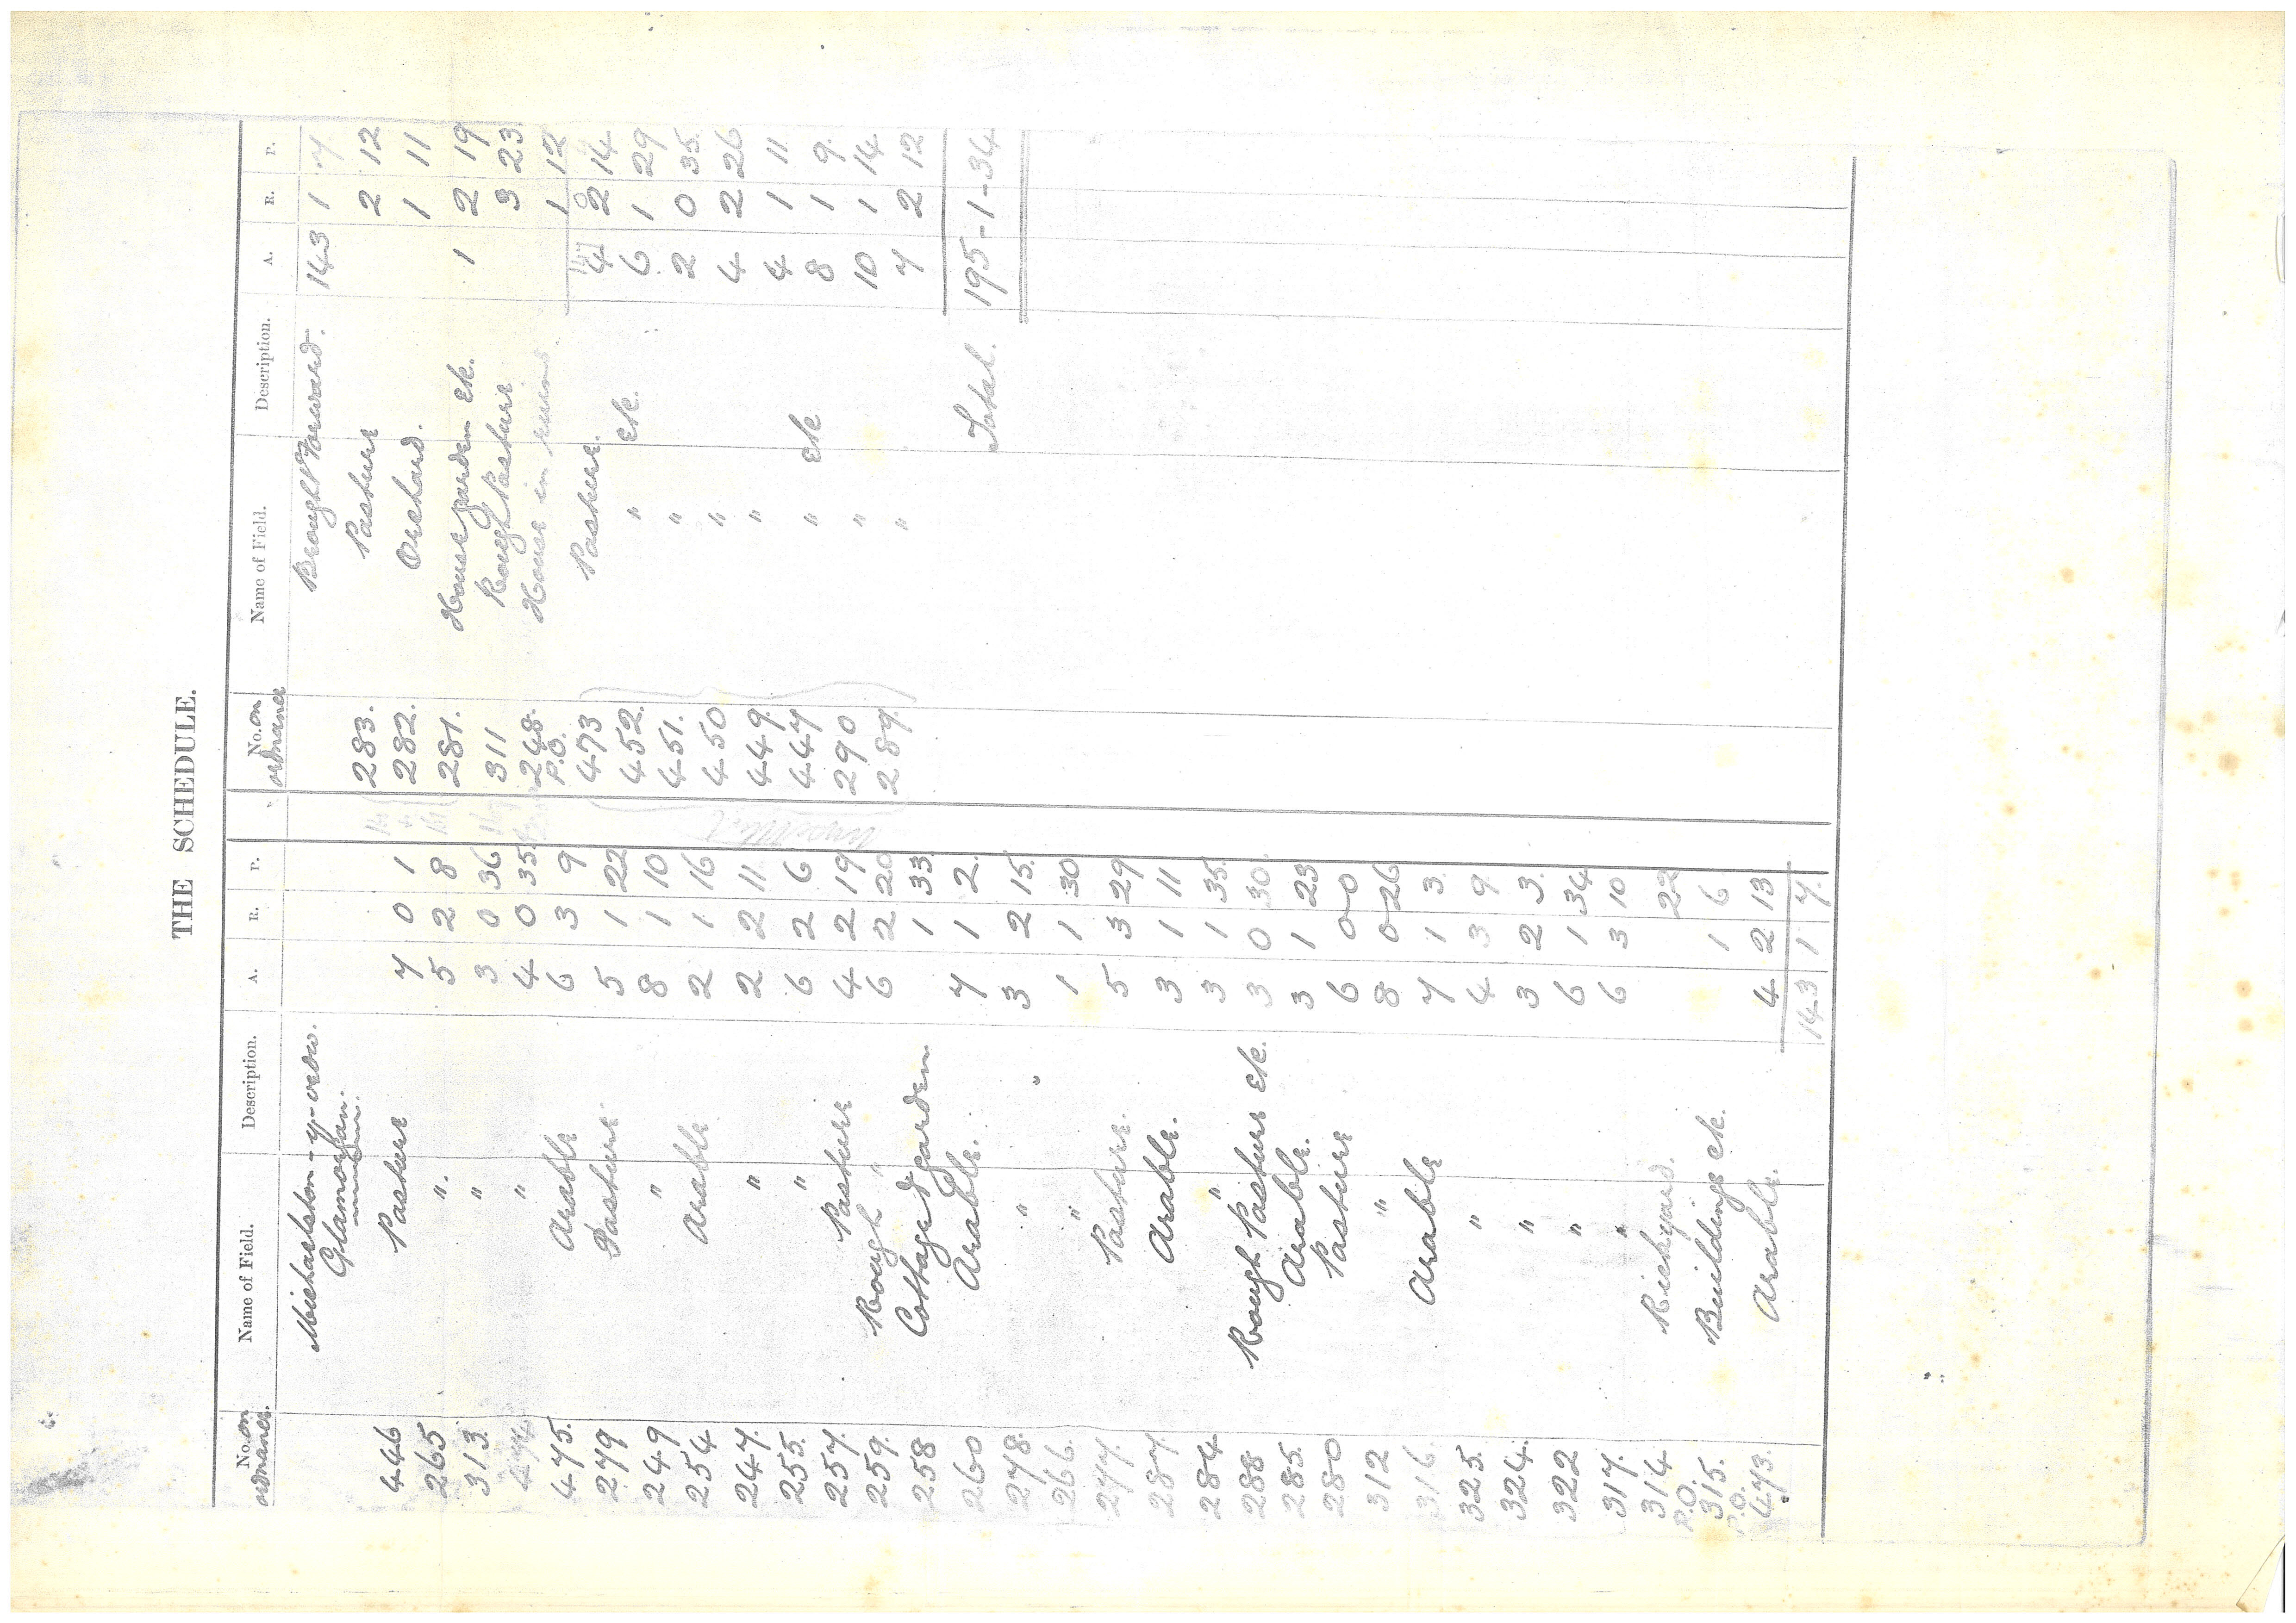 THE SCHEDULE.
No. on ordnance. Name of Field. Description. A. R. P.
Michaelston-y-vedw.
Glamorgan.
446 Pasture 7 0 1
265 " 5 2 8
313. " 3 0 36
474 " 4 0 35
475. Arable 6 3 9
279 Pasture 5 1 22
249 " 8 1 10
254 Arable 2 1 16
247. " 2 2 11
255. " 6 2 6
257. Pasture 4 2 19
259. Rough " 6 2 20
258 Cottage & garden 1 33
260 Arable. 7 1 2.
278. " 3 2 15.
266. " 1 1 30
277. Pasture. 5 3 29
287. Arable. 3 1 11
284 " 3 1 35
288 Rough Pasture etc. 3 0 30.
285. Arable. 3 1 23
280 Pasture 6 0 0
312 " 8 0 26
316. Arable 7 1 3.
325. " 4 3 9.
324. " 3 2 3.
322 " 6 1 34
317. " 6 3 10
314 P.O. Rickyard. 22
315. P.O. Buildings etc. 1 6
473. Arable. 4 2 13
143 1 7.
No. on ordnance Name of Field. Description. A. R. P.
Brought Forward. 143 1 7
283. Pasture 2 12
282. Orchard. 1 11
281. House garden etc. 1 2 19
311 Rough Pasture 3 23
248. P.O. House in ruins. 1 12
473 Pasture. 4 2 14
452. " etc. 6 1 29
451. " 2 0 35.
450 " 4 2 26
449. " 4 1 11.
447 " etc 8 1 9.
290 " 10 1 14
287. " 7 2 12
Total. 195-1-34